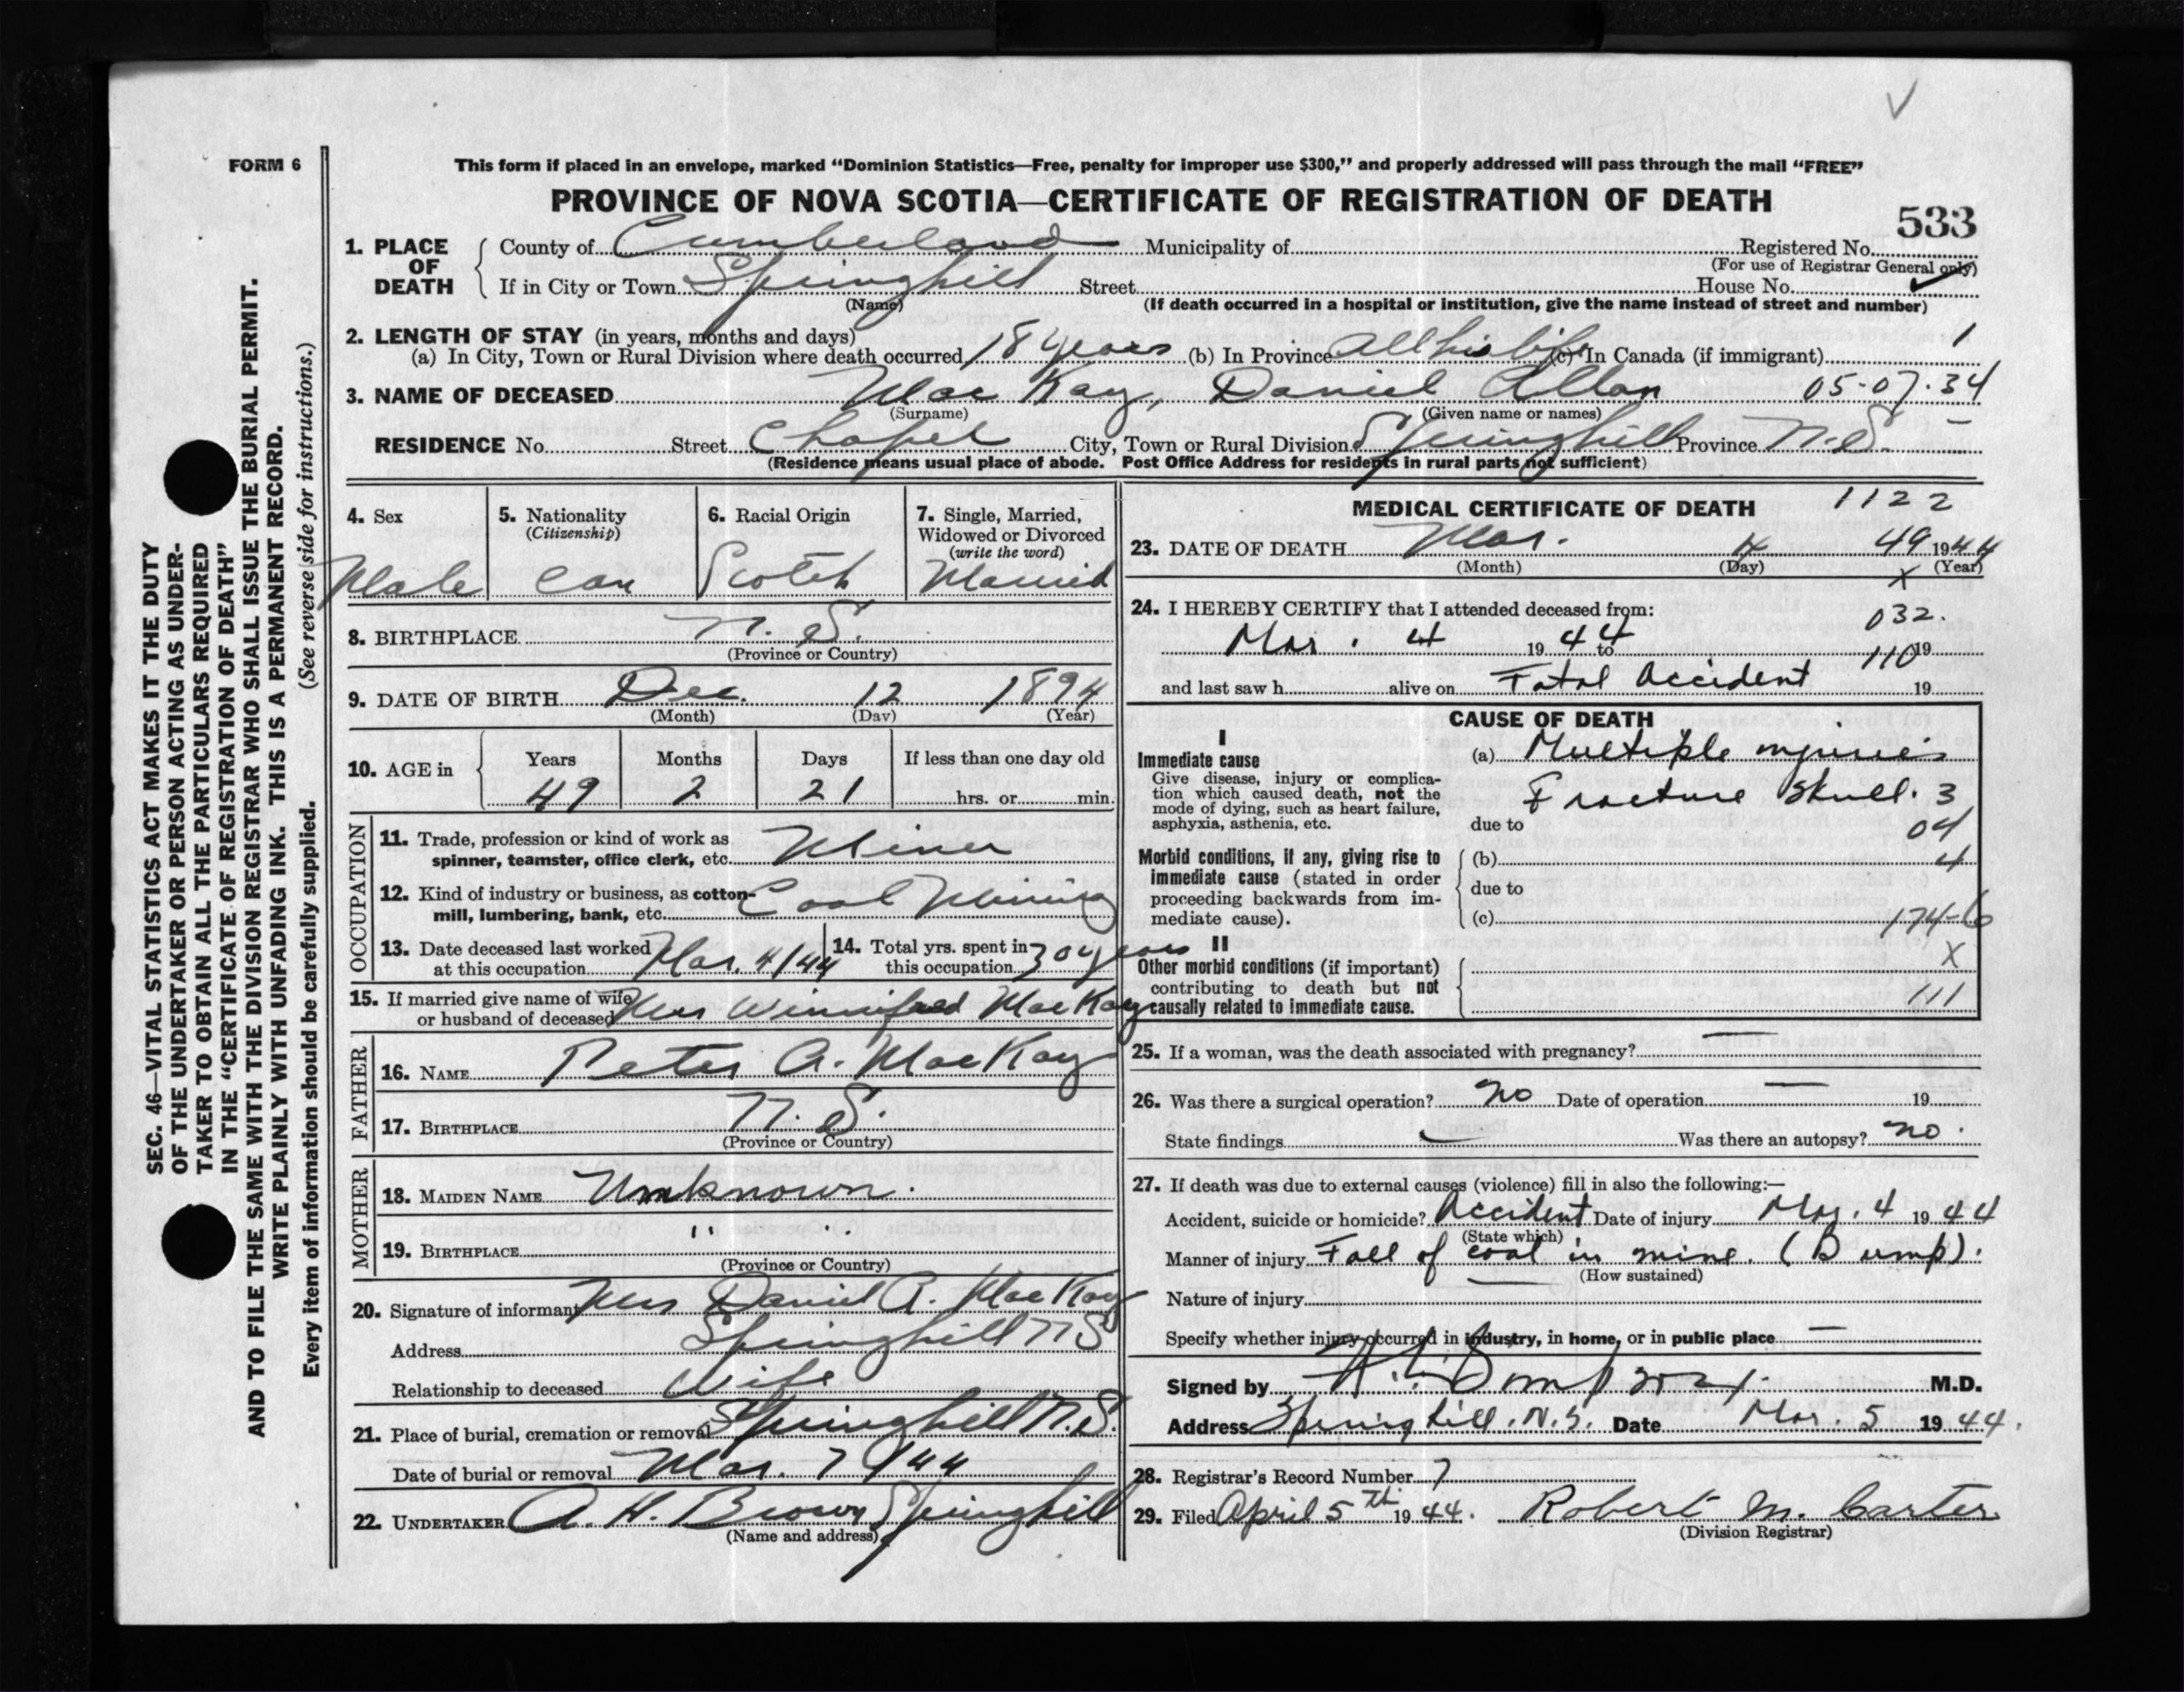 FORM 6
This form if placed in an envelope, marked “Dominion Statistics—Free, penalty for improper use $300,” and properly addressed will pass through the mail “FREE”
PROVINCE OF NOVA SCOTIA—CERTIFICATE OF REGISTRATION OF DEATH
533
1. PLACE OF DEATH
County of Cumberland Municipality of Registered No.
(For use of Registrar General only)
If in City or Town Springhill Street House No.
(Name) (If death occurred in a hospital or institution, give the name instead of street and number)
2. LENGTH OF STAY (in years, months and days)
(a) In City, Town or Rural Division where death occurred 18 years (b) In Province All his life (c) In Canada (if immigrant) 1
3. NAME OF DECEASED Mac Kay, Daniel Allan 05-07-34
(Surname) (Given name or names)
RESIDENCE No. Street Chapel City, Town or Rural Division Springhill Province N.S. –
(Residence means usual place of abode. Post Office Address for residents in rural parts not sufficient)
4. Sex
Male
5. Nationality
(Citizenship)
Can
6. Racial Origin
Scotch
7. Single, Married,
Widowed or Divorced
(write the word)
Married
8. BIRTHPLACE N.S.
(Province or Country)
9. DATE OF BIRTH Dec. 12 1894
(Month) (Day) (Year)
10. AGE in
Years Months Days If less than one day old
49 2 21 hrs. or min.
OCCUPATION
11. Trade, profession or kind of work as
spinner, teamster, office clerk, etc. Miner
12. Kind of industry or business, as cotton-
mill, lumbering, bank, etc. Coal Mining
13. Date deceased last worked
at this occupation Mar. 4/44
14. Total yrs. spent in
this occupation 30 years
15. If married give name of wife
or husband of deceased Mrs Winnifred MacKay
FATHER
16. NAME Peter A. MacKay
17. BIRTHPLACE N.S.
(Province or Country)
MOTHER
18. MAIDEN NAME Unknown.
19. BIRTHPLACE " "
(Province or Country)
20. Signature of informant Mrs Daniel A. MacKay
Address Springhill N S
Relationship to deceased Wife
21. Place of burial, cremation or removal Springhill N.S.
Date of burial or removal Mar. 7 1944
22. UNDERTAKER A. H. Brown Springhill
(Name and address)
MEDICAL CERTIFICATE OF DEATH 1122
23. DATE OF DEATH Mar. 4 49 1944
(Month) (Day) X (Year)
24. I HEREBY CERTIFY that I attended deceased from: 032.
Mar. 4 1944 to 110 19
and last saw h alive on Fatal Accident 19
CAUSE OF DEATH
I
Immediate cause
Give disease, injury or complica-
tion which caused death, not the
mode of dying, such as heart failure,
asphyxia, asthenia, etc.
(a) Multiple injuries
Fracture Skull. 3
due to 04
Morbid conditions, if any, giving rise to
immediate cause (stated in order
proceeding backwards from im-
mediate cause).
(b) 4
due to
(c) 174-6
II
Other morbid conditions (if important)
contributing to death but not
causally related to immediate cause.
X
111
25. If a woman, was the death associated with pregnancy? —
26. Was there a surgical operation? No Date of operation — 19
State findings Was there an autopsy? No.
27. If death was due to external causes (violence) fill in also the following:—
Accident, suicide or homicide? Accident Date of injury Mar. 4 1944
(State which)
Manner of injury Fall of coal in mine. (Bump).
(How sustained)
Nature of injury
Specify whether injury occurred in industry, in home, or in public place —
Signed by M.D.
Address Springhill. N.S. Date Mar. 5 1944.
28. Registrar's Record Number 7
29. Filed April 5th 1944. Robert M. Carter
(Division Registrar)
SEC. 46—VITAL STATISTICS ACT MAKES IT THE DUTY
OF THE UNDERTAKER OR PERSON ACTING AS UNDER-
TAKER TO OBTAIN ALL THE PARTICULARS REQUIRED
IN THE “CERTIFICATE OF REGISTRATION OF DEATH”
AND TO FILE THE SAME WITH THE DIVISION REGISTRAR WHO SHALL ISSUE THE BURIAL PERMIT.
WRITE PLAINLY WITH UNFADING INK. THIS IS A PERMANENT RECORD.
Every item of information should be carefully supplied. (See reverse side for instructions.)